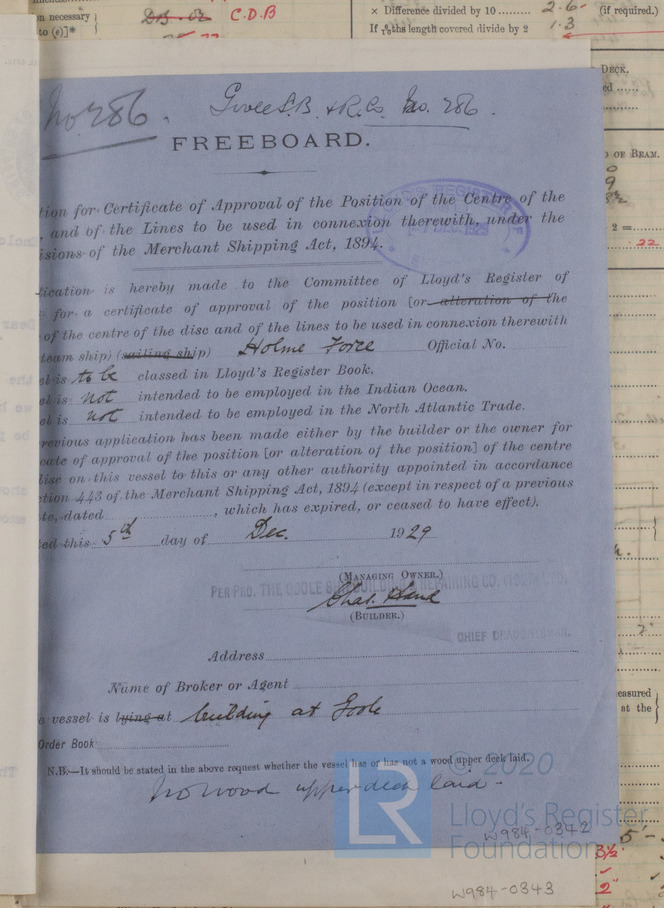 on necessary
to (e)]*
C.D.B
× Difference divided by 10 ........ 2.6
(if required.)
If 7/10ths length covered divide by 2 1.3
DECK.
OF BEAM.
No 286.
Goole S.B. & R. Co. No. 286.
FREEBOARD.
tion for Certificate of Approval of the Position of the Centre of the
and of the Lines to be used in connexion therewith, under the
isions of the Merchant Shipping Act, 1894.
lication is hereby made to the Committee of Lloyd's Register of
for a certificate of approval of the position [or alteration of the
of the centre of the disc and of the lines to be used in connexion therewith
team ship) (sailing ship) Holme Force Official No.
el is to be classed in Lloyd's Register Book.
el is not intended to be employed in the Indian Ocean.
el is not intended to be employed in the North Atlantic Trade.
revious application has been made either by the builder or the owner for
cate of approval of the position [or alteration of the position] of the centre
disc on this vessel to this or any other authority appointed in accordance
ction 443 of the Merchant Shipping Act, 1894 (except in respect of a previous
te, dated ........, which has expired, or ceased to have effect).
ed this 5th day of Dec. 1929
(MANAGING OWNER.)
PER PRO. THE GOOLE SHIPBUILDING & REPAIRING CO. (1927) LTD.
Chas. Hand
(BUILDER.)
CHIEF DRAUGHTSMAN.
Address
Name of Broker or Agent
e vessel is lying at building at Goole
Order Book
N.B.—It should be stated in the above request whether the vessel has or has not a wood upper deck laid.
No wood upper deck laid.
easured
at the
© 2020
LR
Lloyd's Register
Foundation
W984-0342
W984-0343